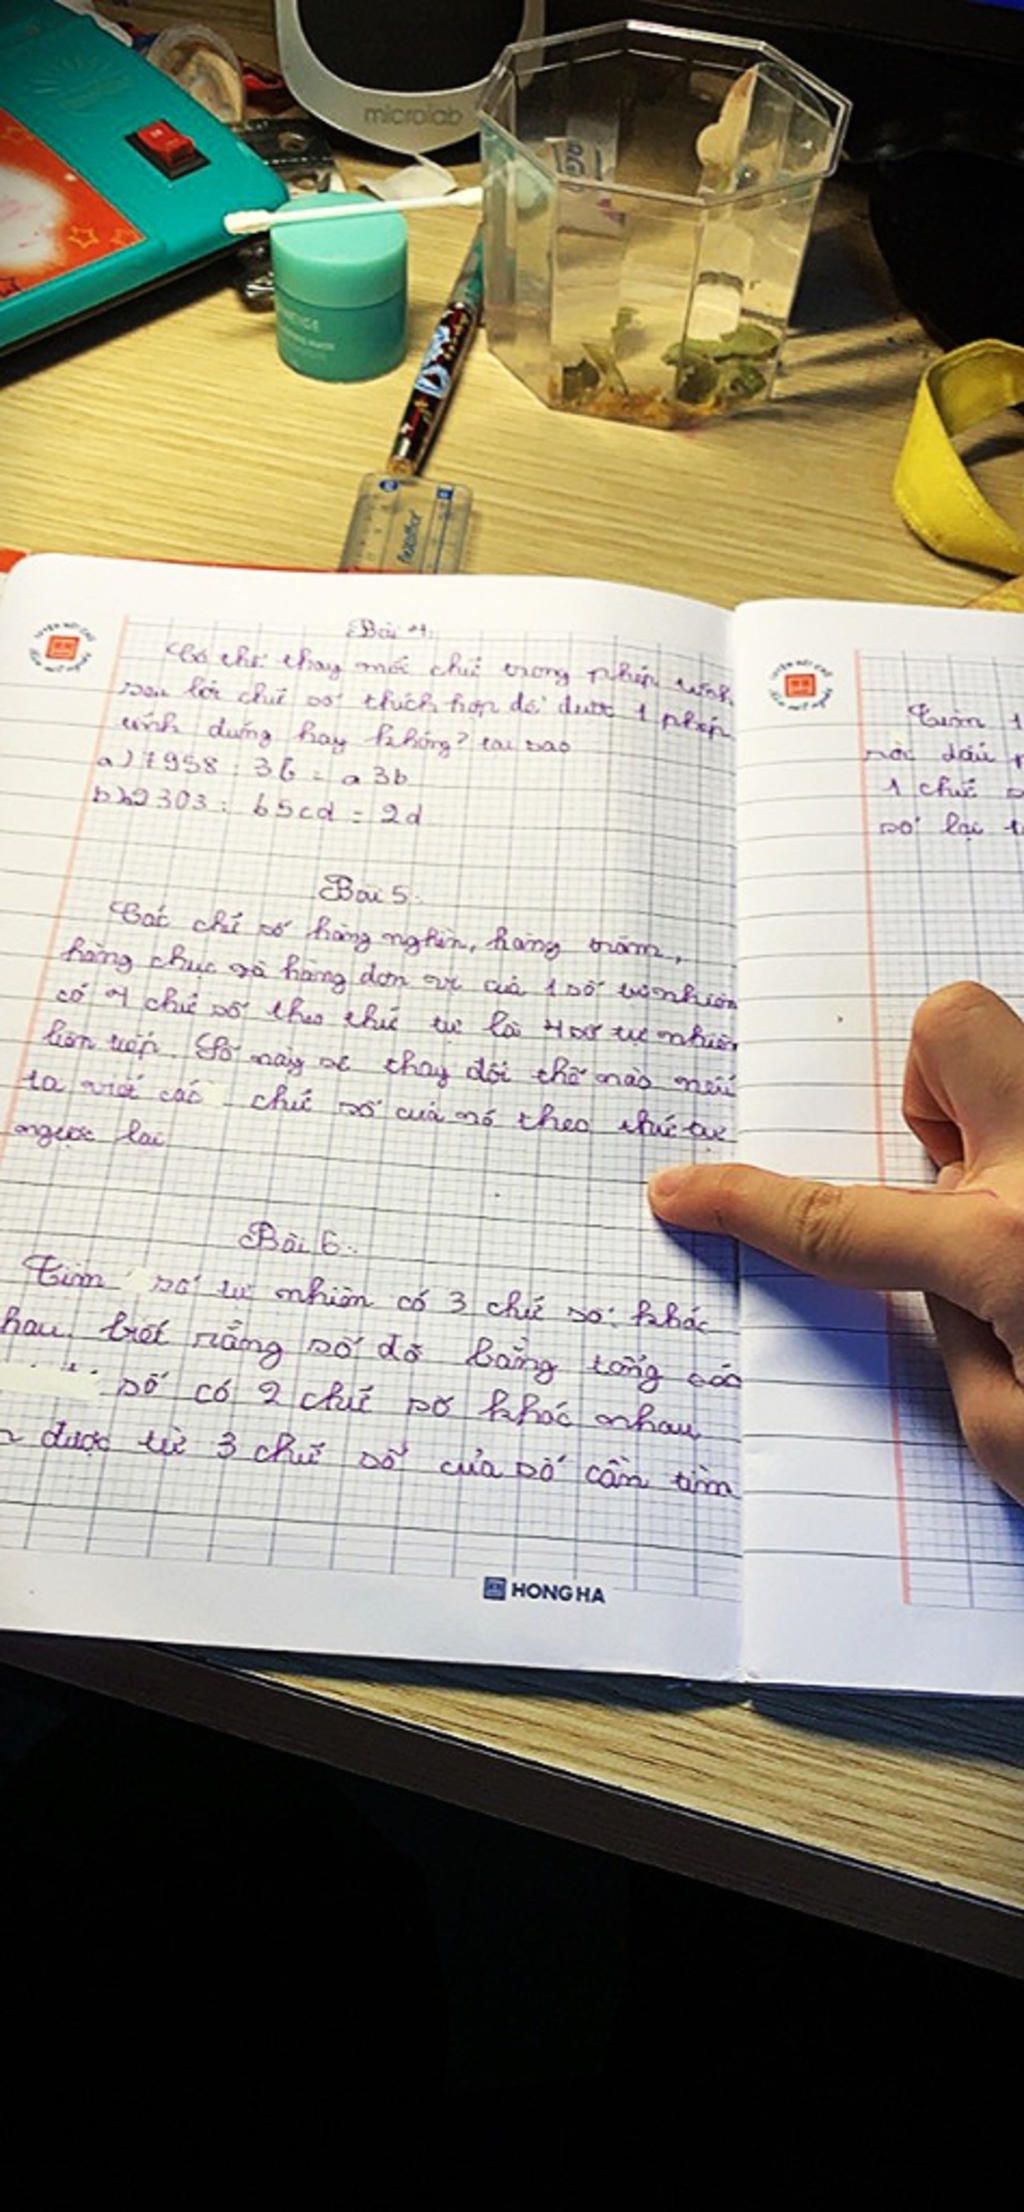 microlab
Bài 4:
Có thể thay mỗi chữ trong phép tính
sau bởi chữ số thích hợp để được 1 phép
tính đúng hay không? tại sao
a) 7958 : 36 = a3b
b) b2303 : b5cd = 2d
Bài 5.
Các chữ số hàng nghìn, hàng trăm,
hàng chục và hàng đơn vị của 1 số tự nhiên
có 4 chữ số theo thứ tự là 4 số tự nhiên
liên tiếp. Số này sẽ thay đổi thế nào nếu
ta viết các chữ số của nó theo thứ tự
ngược lại
Bài 6.
Tìm số tự nhiên có 3 chữ số khác
hau. biết rằng số đó bằng tổng các
số có 2 chữ số khác nhau
được từ 3 chữ số của số cần tìm
HONG HA
1 chữ
số lại